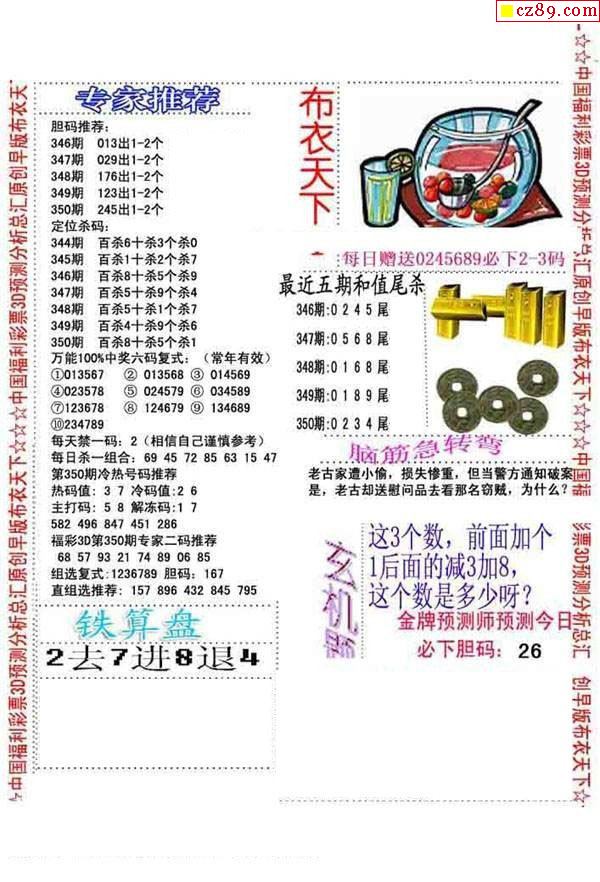 cz89.com
☆☆中国福利彩票3D预测分析总汇原创早版布衣天下☆☆☆中国福利彩票3D预测分析总汇原创早版布衣天
专家推荐
胆码推荐:
346期 013出1-2个
347期 029出1-2个
348期 176出1-2个
349期 123出1-2个
350期 245出1-2个
定位杀码:
344期 百杀6十杀3个杀0
345期 百杀1十杀2个杀7
346期 百杀8十杀5个杀9
347期 百杀5十杀9个杀4
348期 百杀5十杀1个杀7
349期 百杀4十杀9个杀6
350期 百杀8十杀5个杀1
万能100%中奖六码复式:(常年有效)
①013567 ② 013568 ③ 014569
④023578 ⑤ 024579 ⑥ 034589
⑦123678 ⑧ 124679 ⑨ 134689
⑩234789
每天禁一码: 2(相信自己谨慎参考)
每日杀一组合: 69 45 72 85 63 15 47
第350期冷热号码推荐
热码值: 3 7 冷码值: 2 6
主打码: 5 8 解冻码: 1 7
582 496 847 451 286
福彩3D第350期专家二码推荐
68 57 93 21 74 89 06 85
组选复式:1236789 胆码: 167
直组选推荐: 157 896 432 845 795
铁算盘
2去7进8退4
布衣天下
每日赠送0245689必下2-3码
最近五期和值尾杀
346期:0 2 4 5 尾
347期:0 5 6 8 尾
348期:0 1 6 8 尾
349期:0 1 8 9 尾
350期:0 2 3 4 尾
脑筋急转弯
老古家遭小偷，损失惨重，但当警方通知破案
是，老古却送慰问品去看那名窃贼，为什么?
玄机
这3个数，前面加个
1后面的减3加8，
这个数是多少呀？
金牌预测师预测今日
必下胆码: 26
☆☆中国福利彩票3D预测分析总汇原创早版布衣天下☆☆☆中国福
彩票3D预测分析总汇 创早版布衣天下☆